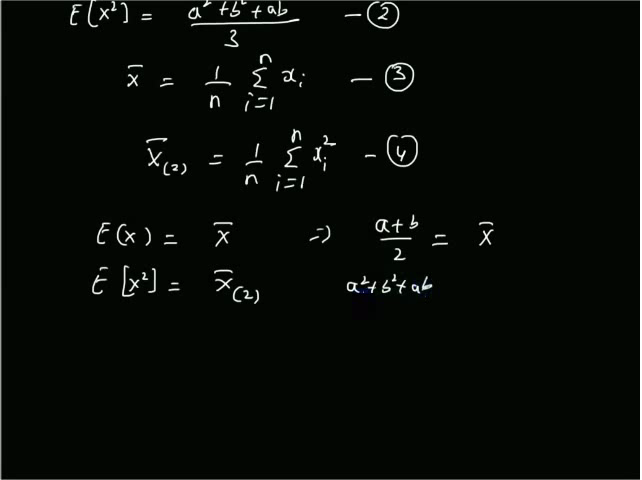 E[x²] = a²+b²+ab / 3 — ②
x̄ = 1/n Σ_{i=1}^{n} xᵢ — ③
x̄₍₂₎ = 1/n Σ_{i=1}^{n} xᵢ² — ④
E(x) = x̄ ⇒ a+b / 2 = x̄
E[x²] = x̄₍₂₎ a²+b²+ab